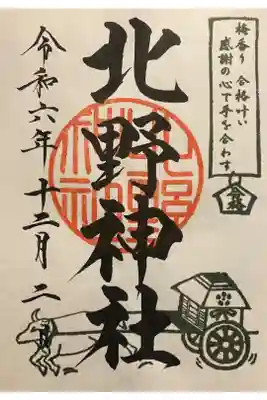 梅香り 合格叶い
感謝の心で手を合わす
北野神社
令和六年十二月二